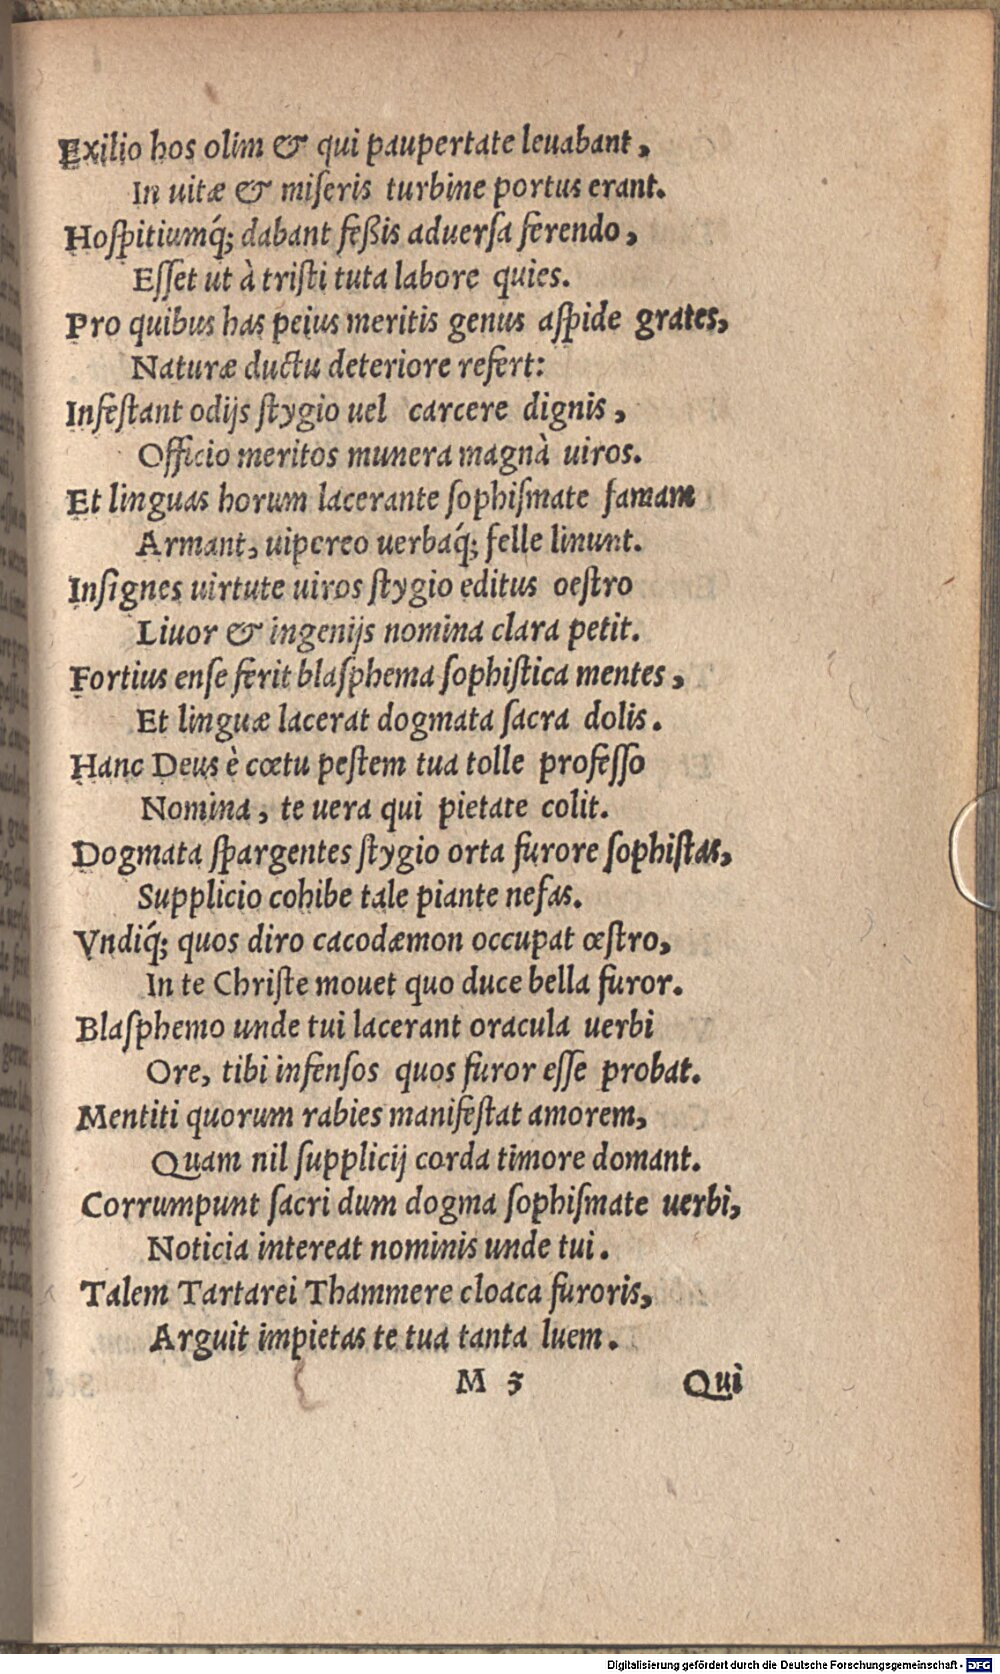 Exilio hos olim & qui paupertate leuabant,
In uitæ & miſeris turbine portus erant.
Hoſpitiumq́; dabant feßis aduerſa ferendo,
Eſſet ut à triſti tuta labore quies.
Pro quibus has peius meritis genus aſpide grates,
Naturæ ductu deteriore refert:
Infeſtant odijs ſtygio uel carcere dignis,
Officio meritos munera magnà uiros.
Et linguas horum lacerante ſophiſmate famam
Armant, uipereo uerbaq́; felle linunt.
Inſignes uirtute uiros ſtygio editus oeſtro
Liuor & ingenijs nomina clara petit.
Fortius enſe ferit blaſphema ſophiſtica mentes,
Et linguæ lacerat dogmata ſacra dolis.
Hanc Deus è cœtu peſtem tua tolle profeſſo
Nomina, te uera qui pietate colit.
Dogmata ſpargentes ſtygio orta furore ſophiſtas,
Supplicio cohibe tale piante nefas.
Vndiq́; quos diro cacodæmon occupat œſtro,
In te Chriſte mouet quo duce bella furor.
Blaſphemo unde tui lacerant oracula uerbi
Ore, tibi infenſos quos furor eſſe probat.
Mentiti quorum rabies manifeſtat amorem,
Quam nil ſupplicij corda timore domant.
Corrumpunt ſacri dum dogma ſophiſmate uerbi,
Noticia intereat nominis unde tui.
Talem Tartarei Thammere cloaca furoris,
Arguit impietas te tua tanta luem.
M 3 Qui
Digitalisierung gefördert durch die Deutsche Forschungsgemeinschaft - DFG